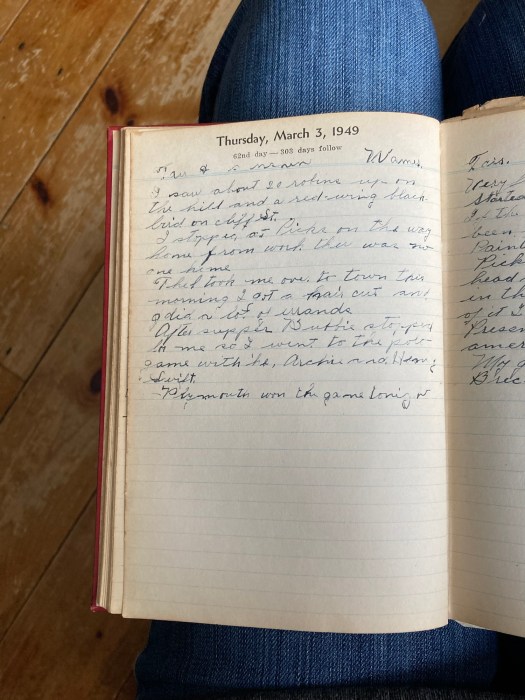 Thursday, March 3, 1949
62nd day — 303 days follow
Warmer.
I saw about 20 robins up on
the hill and a red-wing black-
bird on cliff St.
I stopped at Picks on the way
home from work ther was no
one hime
Thet took me over to town this
morning I got a hair cut and
did a lot of errands
After supper Buttie stopped
in me so I went to the polo
game with he, Archie and
Swift.
Plymouth won the game
Very
Started
been,
Paint
Pick
head
in th
of it I
Presen
amer
My g